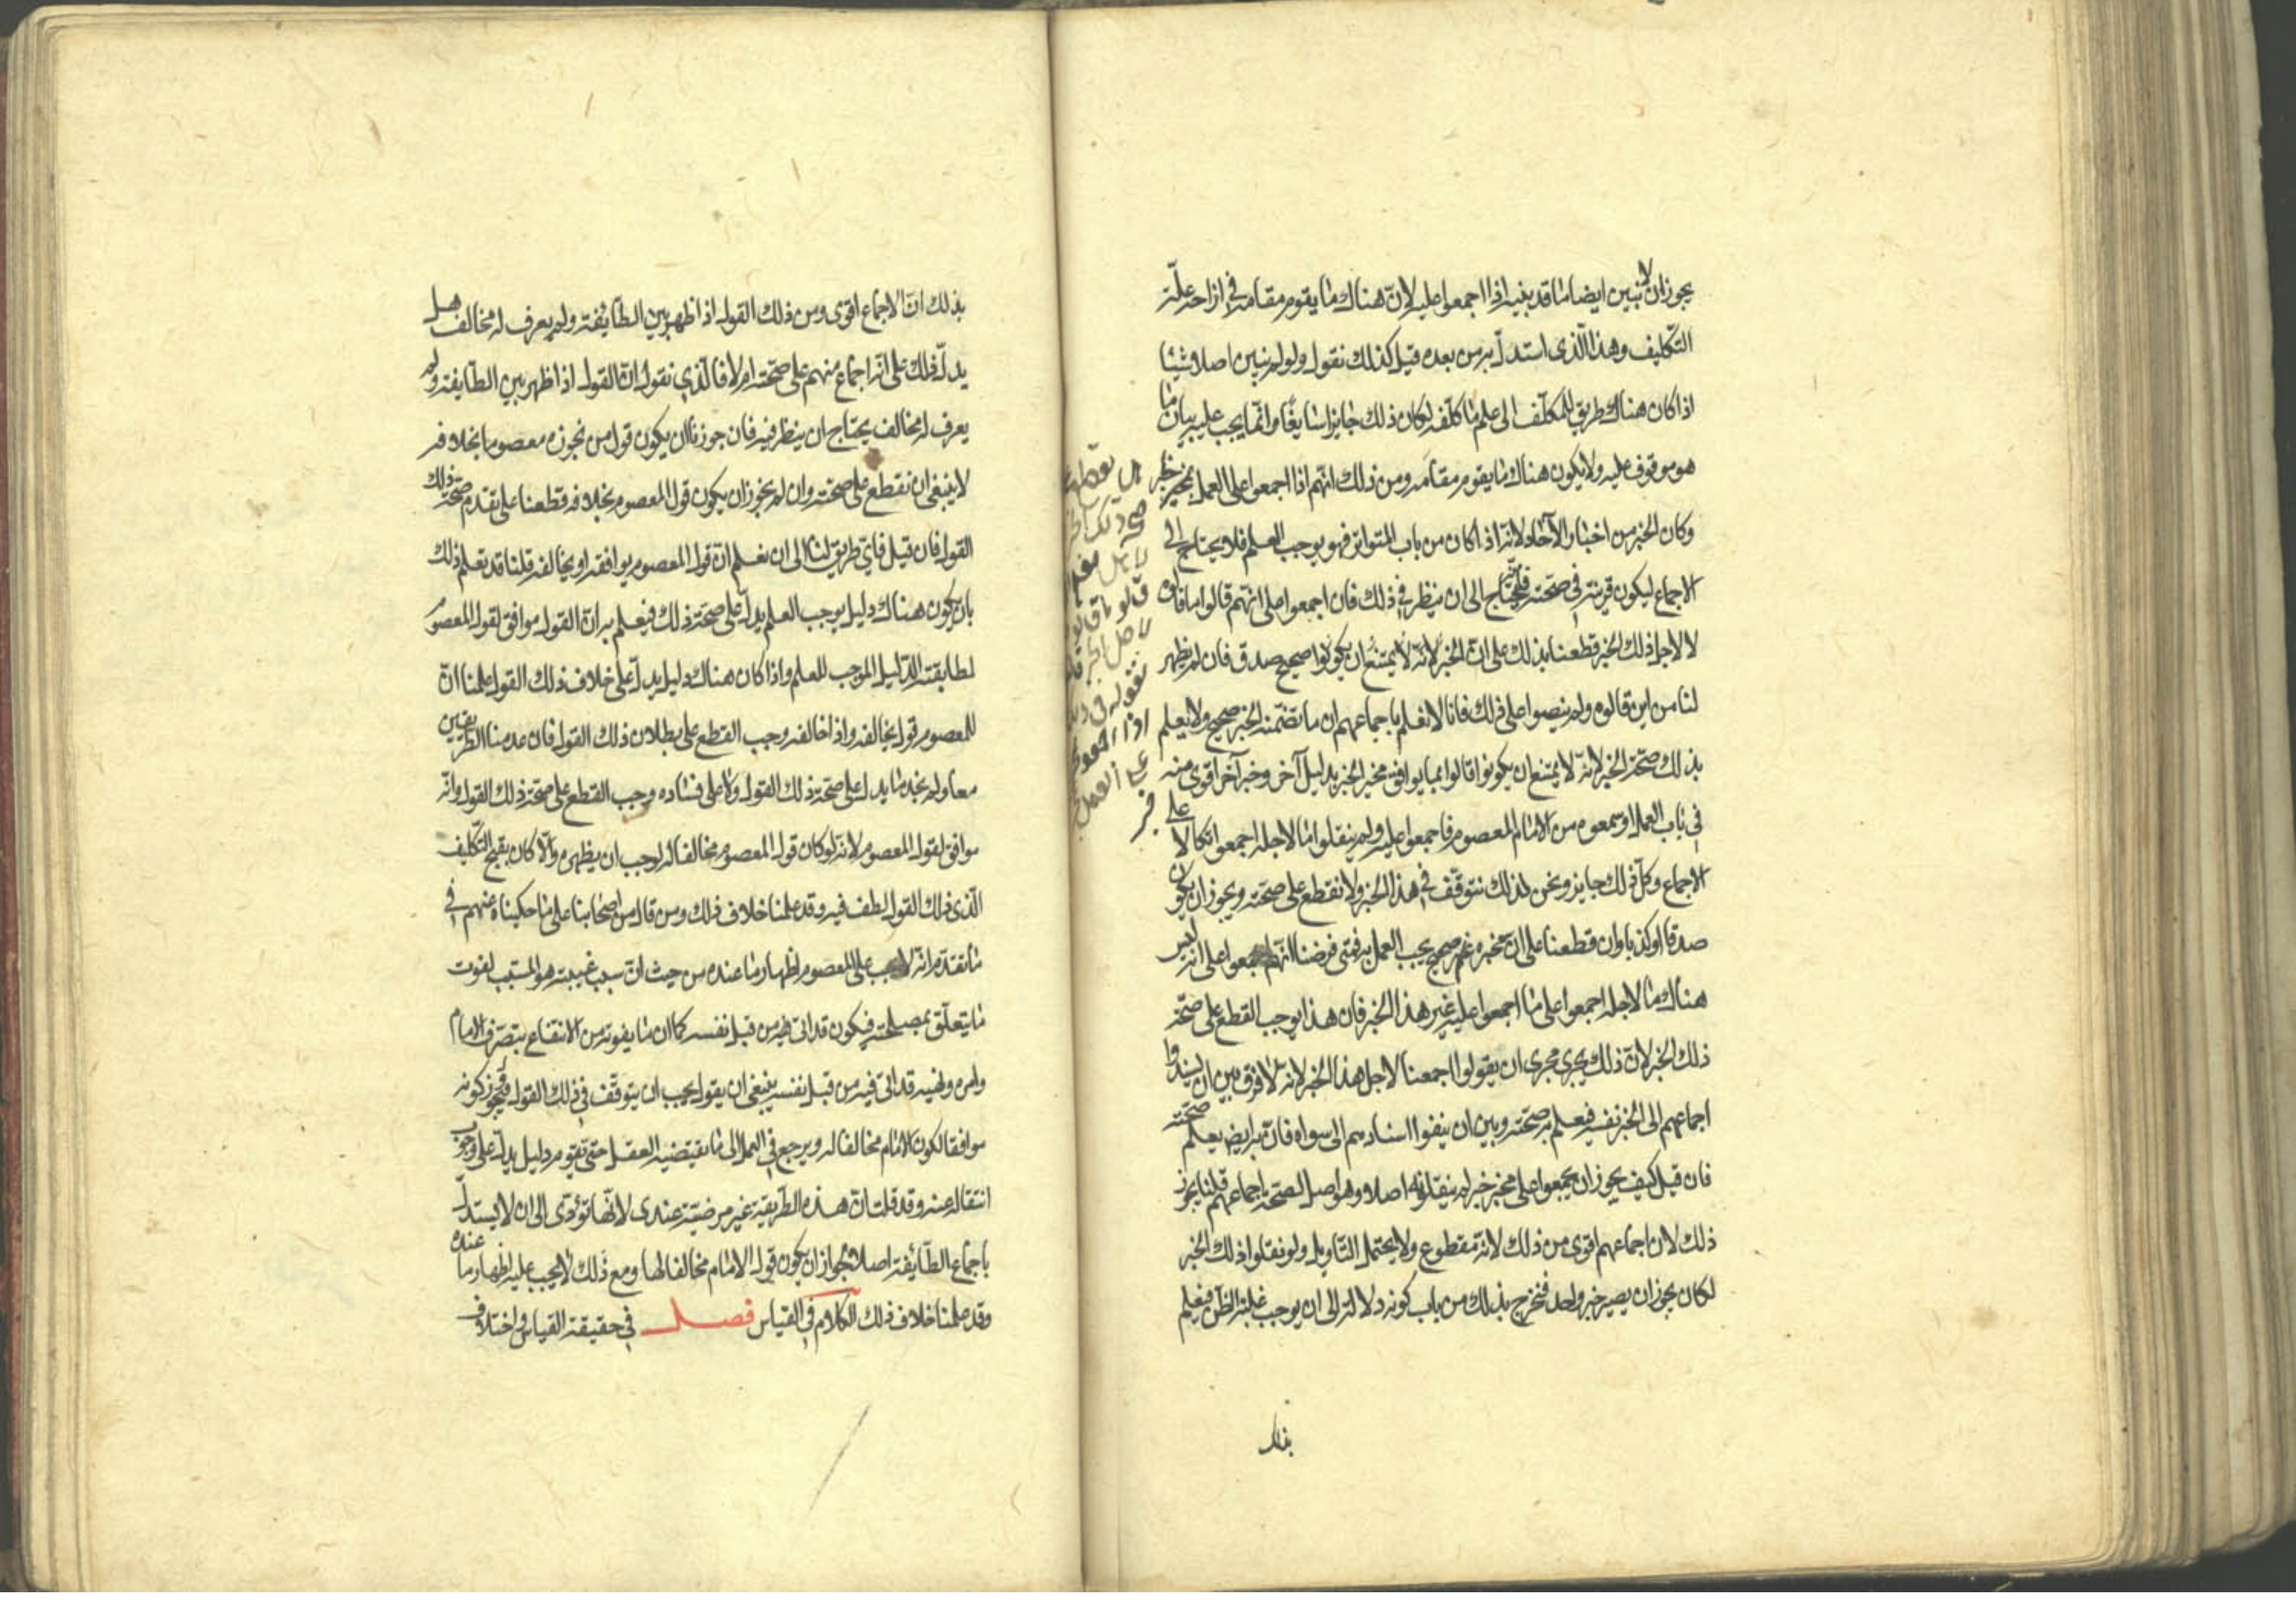 يجوز ان لا نبين ايضا ما قد بنيه اذا اجمعوا عليه لان هناك ما يقوم مقامه في ازاحة علّة
التكليف وهذا الّذى استدلّ به من بعده قيل كذلك نقول ولو لم نبين اصلا شيئا
اذا كان هناك طريق للمكلّف الى علم ما كلّفه لكان ذلك جايزا سايغا وانّما يجب عليه بيان ما
هو موقوف عليه ولا يكون هناك ما يقوم مقامه ومن ذلك انّهم اذا اجمعوا على العمل بمخبر خبر
وكان الخبر من اخبار الآحاد لانّه اذا كان من باب المتواتر فهو يوجب العلم فلا يحتاج الى
الاجماع ليكون قرينة في صحّته فيحتاج الى ان ينظر في ذلك فان اجمعوا على انّهم قالوا ما قالوه
لاجل ذلك الخبر قطعنا بذلك على انّ الخبر لانّه لا يمتنع ان يكونوا صحيح صدق فان لم يظهر
لنا من اين قالوه ولم ينصوا على ذلك فانا لا نعلم باجماعهم ان ما تضمّنه الخبر صحيح ولا يعلم
بذلك صحّة الخبر لانّه لا يمتنع ان يكونوا قالوا بما يوافق مخبر الخبر بدليل آخر وخبر آخر اقوى منه
في باب العمل او سمعوه من الامام المعصوم فاجمعوا عليه ولم ينقلوا ما لاجله اجمعوا اتكالا على
الاجماع وكلّ ذلك جايز ونحن لذلك نتوقّف في هذا الخبر ولا نقطع على صحّته ويجوز ان يكون
صدقا او كذبا وان قطعنا على ان مخبره صحيح يجب العمل به فمتى فرضنا انّهم اجمعوا على انه ليس
هناك ما لاجله اجمعوا على ما اجمعوا عليه غير هذا الخبر فان هذا يوجب القطع على صحّة
ذلك الخبر لانّ ذلك يجرى مجرى ان يقولوا اجمعنا لاجل هذا الخبر لانه لا فرق بين ان يسندوا
اجماعهم الى الخبر نفسه فيعلم به صحّته وبين ان ينفوا اسنادهم الى سواه فان به ايضا يعلم صحّته
فان قيل كيف يجوز ان يجمعوا على مخبر خبر لم ينقلونه اصلا وهو اصل الصحّة باجماعهم قلنا يجوز
ذلك لان اجماعهم اقوى من ذلك لانّه مقطوع ولا يحتمل التّأويل ولو نقلوا ذلك الخبر
لكان يجوز ان يصير خبر واحد فنخرج بذلك من باب كونه دلالة الى ان يوجب غلبة الظن فيعلم
بذلك
بذلك انّ الاجماع اقوى ومن ذلك القول اذا ظهر بين الطّايفة ولم يعرف له مخالف هل
يدلّ ذلك على انّه اجماع منهم على صحّته ام لا فالّذي نقول انّ القول اذا ظهر بين الطّايفة ولم
يعرف له مخالف يحتاج ان ينظر فيه فان جوّزنا ان يكون قول من نجوزه معصوما بخلافه
لا ينبغى ان نقطع على صحّته وان لم يجوز ان يكون قول المعصوم بخلافه قطعنا على تقدم صحّة ذلك
القول فان قيل فايّ طريق لنا الى ان نعلم انّ قول المعصوم يوافقه او يخالفه قلنا قد نعلم ذلك
بان يكون هناك دليل يوجب العلم يدلّ على صحّة ذلك فيعلم به انّ القول موافق لقول المعصوم
لمطابقته الدّليل الموجب للعلم واذا كان هناك دليل يدلّ على خلاف ذلك القول علمنا انّ
للمعصوم قولا يخالفه واذا خالفه وجب القطع على بطلان ذلك القول فان عدمنا الطّريقين
معا ولم نجد ما يدلّ على صحّة ذلك القول ولا على فساده وجب القطع على صحّة ذلك القول وانّه
موافق لقول المعصوم لانّه لو كان قول المعصوم مخالفا له لوجب ان يظهره والّا كان يقبح التّكليف
الّذى ذلك القول لطف فيه وقد علمنا خلاف ذلك ومن قال من اصحابنا على ما حكيناه عنهم في
ما تقدّم انّه لا يجب على المعصوم اظهار ما عنده من حيث انّ سبب غيبته هو المسبّب لفوت
ما يتعلّق بمصلحته فيكون قد اتى فيه من قبل نفسه كما ان ما يفوته من الانتفاع بتصرّف الامام
وامره ونهيه قد اتى فيه من قبل نفسه ينبغى ان يقول يجب ان يتوقّف في ذلك القول ويجوز كونه
موافقا لكون الامام مخالفا له ويرجع في العمل الى ما يقتضيه العقل حتّى يقوم دليل يدلّ على وجوب
انتقاله عنه وقد قلت انّ هذه الطّريقة غير مرضيّة عندى لانّها تؤدّى الى ان لا يستدلّ
باجماع الطّائفة اصلا لجواز ان يكون قول الامام مخالفا لها ومع ذلك لا يجب عليه اظهار ما عنده
وقد علمنا خلاف ذلك الكلام في القياس فصل في حقيقة القياس واختلاف